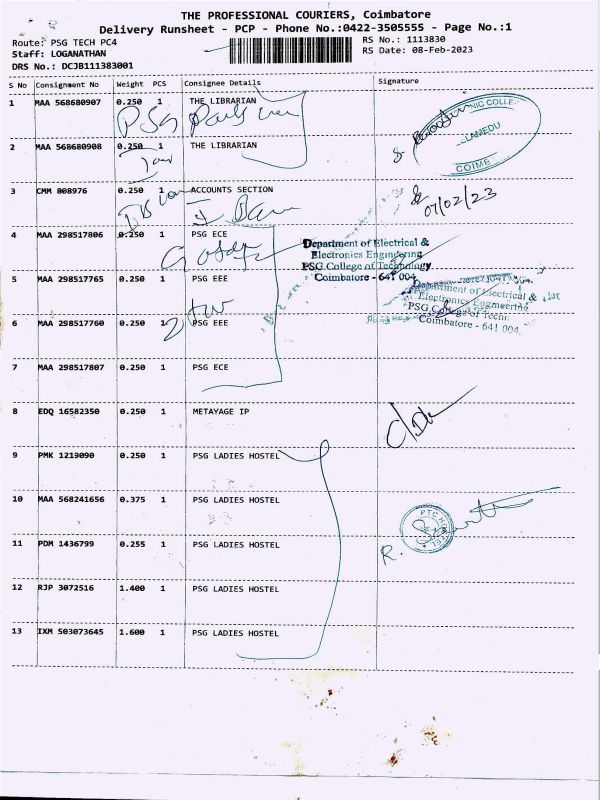 THE PROFESSIONAL COURIERS, Coimbatore
Delivery Runsheet - PCP - Phone No.:0422-3505555 - Page No.:1
Route: PSG TECH PC4
RS No.: 1113830
Staff: LOGANATHAN
RS Date: 08-Feb-2023
DRS No.: DCJB111383001
S No Consignment No Weight PCS Consignee Details Signature
1 MAA 568680907 0.250 1 THE LIBRARIAN
PSG
2 MAA 568680908 0.250 1 THE LIBRARIAN
COIMB
3 CMM 808976 0.250 1 ACCOUNTS SECTION
07/02/23
4 MAA 298517806 0.250 1 PSG ECE
Department of Electrical &
Electronics Engineering
PSG College of Technology
Coimbatore - 641 004.
5 MAA 298517765 0.250 1 PSG EEE
Department of Electrical &
Electronics Engineering
PSG College of Techn
Coimbatore - 641 004.
6 MAA 298517760 0.250 1 PSG EEE
7 MAA 298517807 0.250 1 PSG ECE
8 EDQ 16582350 0.250 1 METAYAGE IP
9 PMK 1219090 0.250 1 PSG LADIES HOSTEL
10 MAA 568241656 0.375 1 PSG LADIES HOSTEL
11 PDM 1436799 0.255 1 PSG LADIES HOSTEL
R.
12 RJP 3072516 1.400 1 PSG LADIES HOSTEL
13 IXM 503073645 1.600 1 PSG LADIES HOSTEL